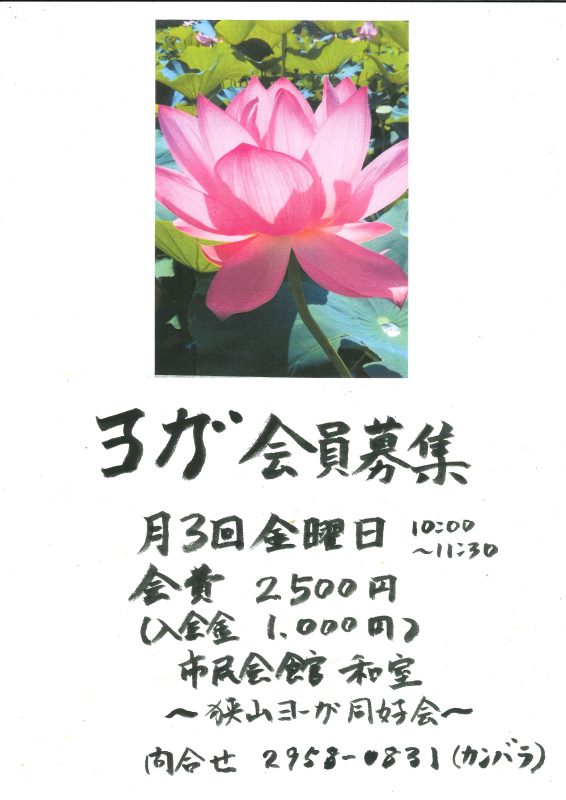 ヨガ 会員募集
月3回 金曜日 10:00
～11:30
会費 2500円
(入会金 1.000円)
市民会館 和室
～狭山ヨーガ同好会～
問合せ 2958-0831 (カンバラ)